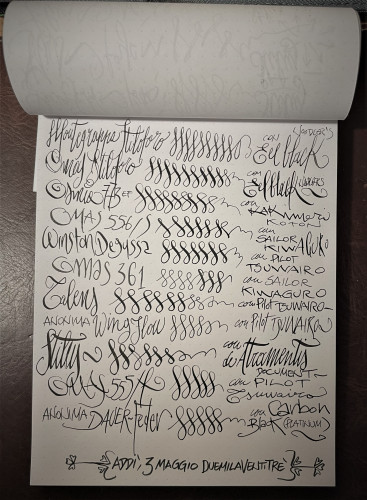 Montegrappa Stiloforo con Eel black (Noodler's)
Omas Stiloforo con Eel black (Noodler's)
Osmia 773 con KAKIMORI KOTON
OMAS 556/S con SAILOR KIWAGURO
Winston Degussa con PILOT TSUWAIRO
Omas 361 con SAILOR KIWAGURO
Talens con PILOT TSUWAIRO
ANONIMA Wing Flow con PILOT TSUWAIRO
con de Atramentis DOCUMENT
Omas 555 con PILOT Tsuwairo
ANONIMA DAUER-Feder con Carbon Black (PLATINUM)
ADDI', 3 MAGGIO DUEMILAVENTITRE'